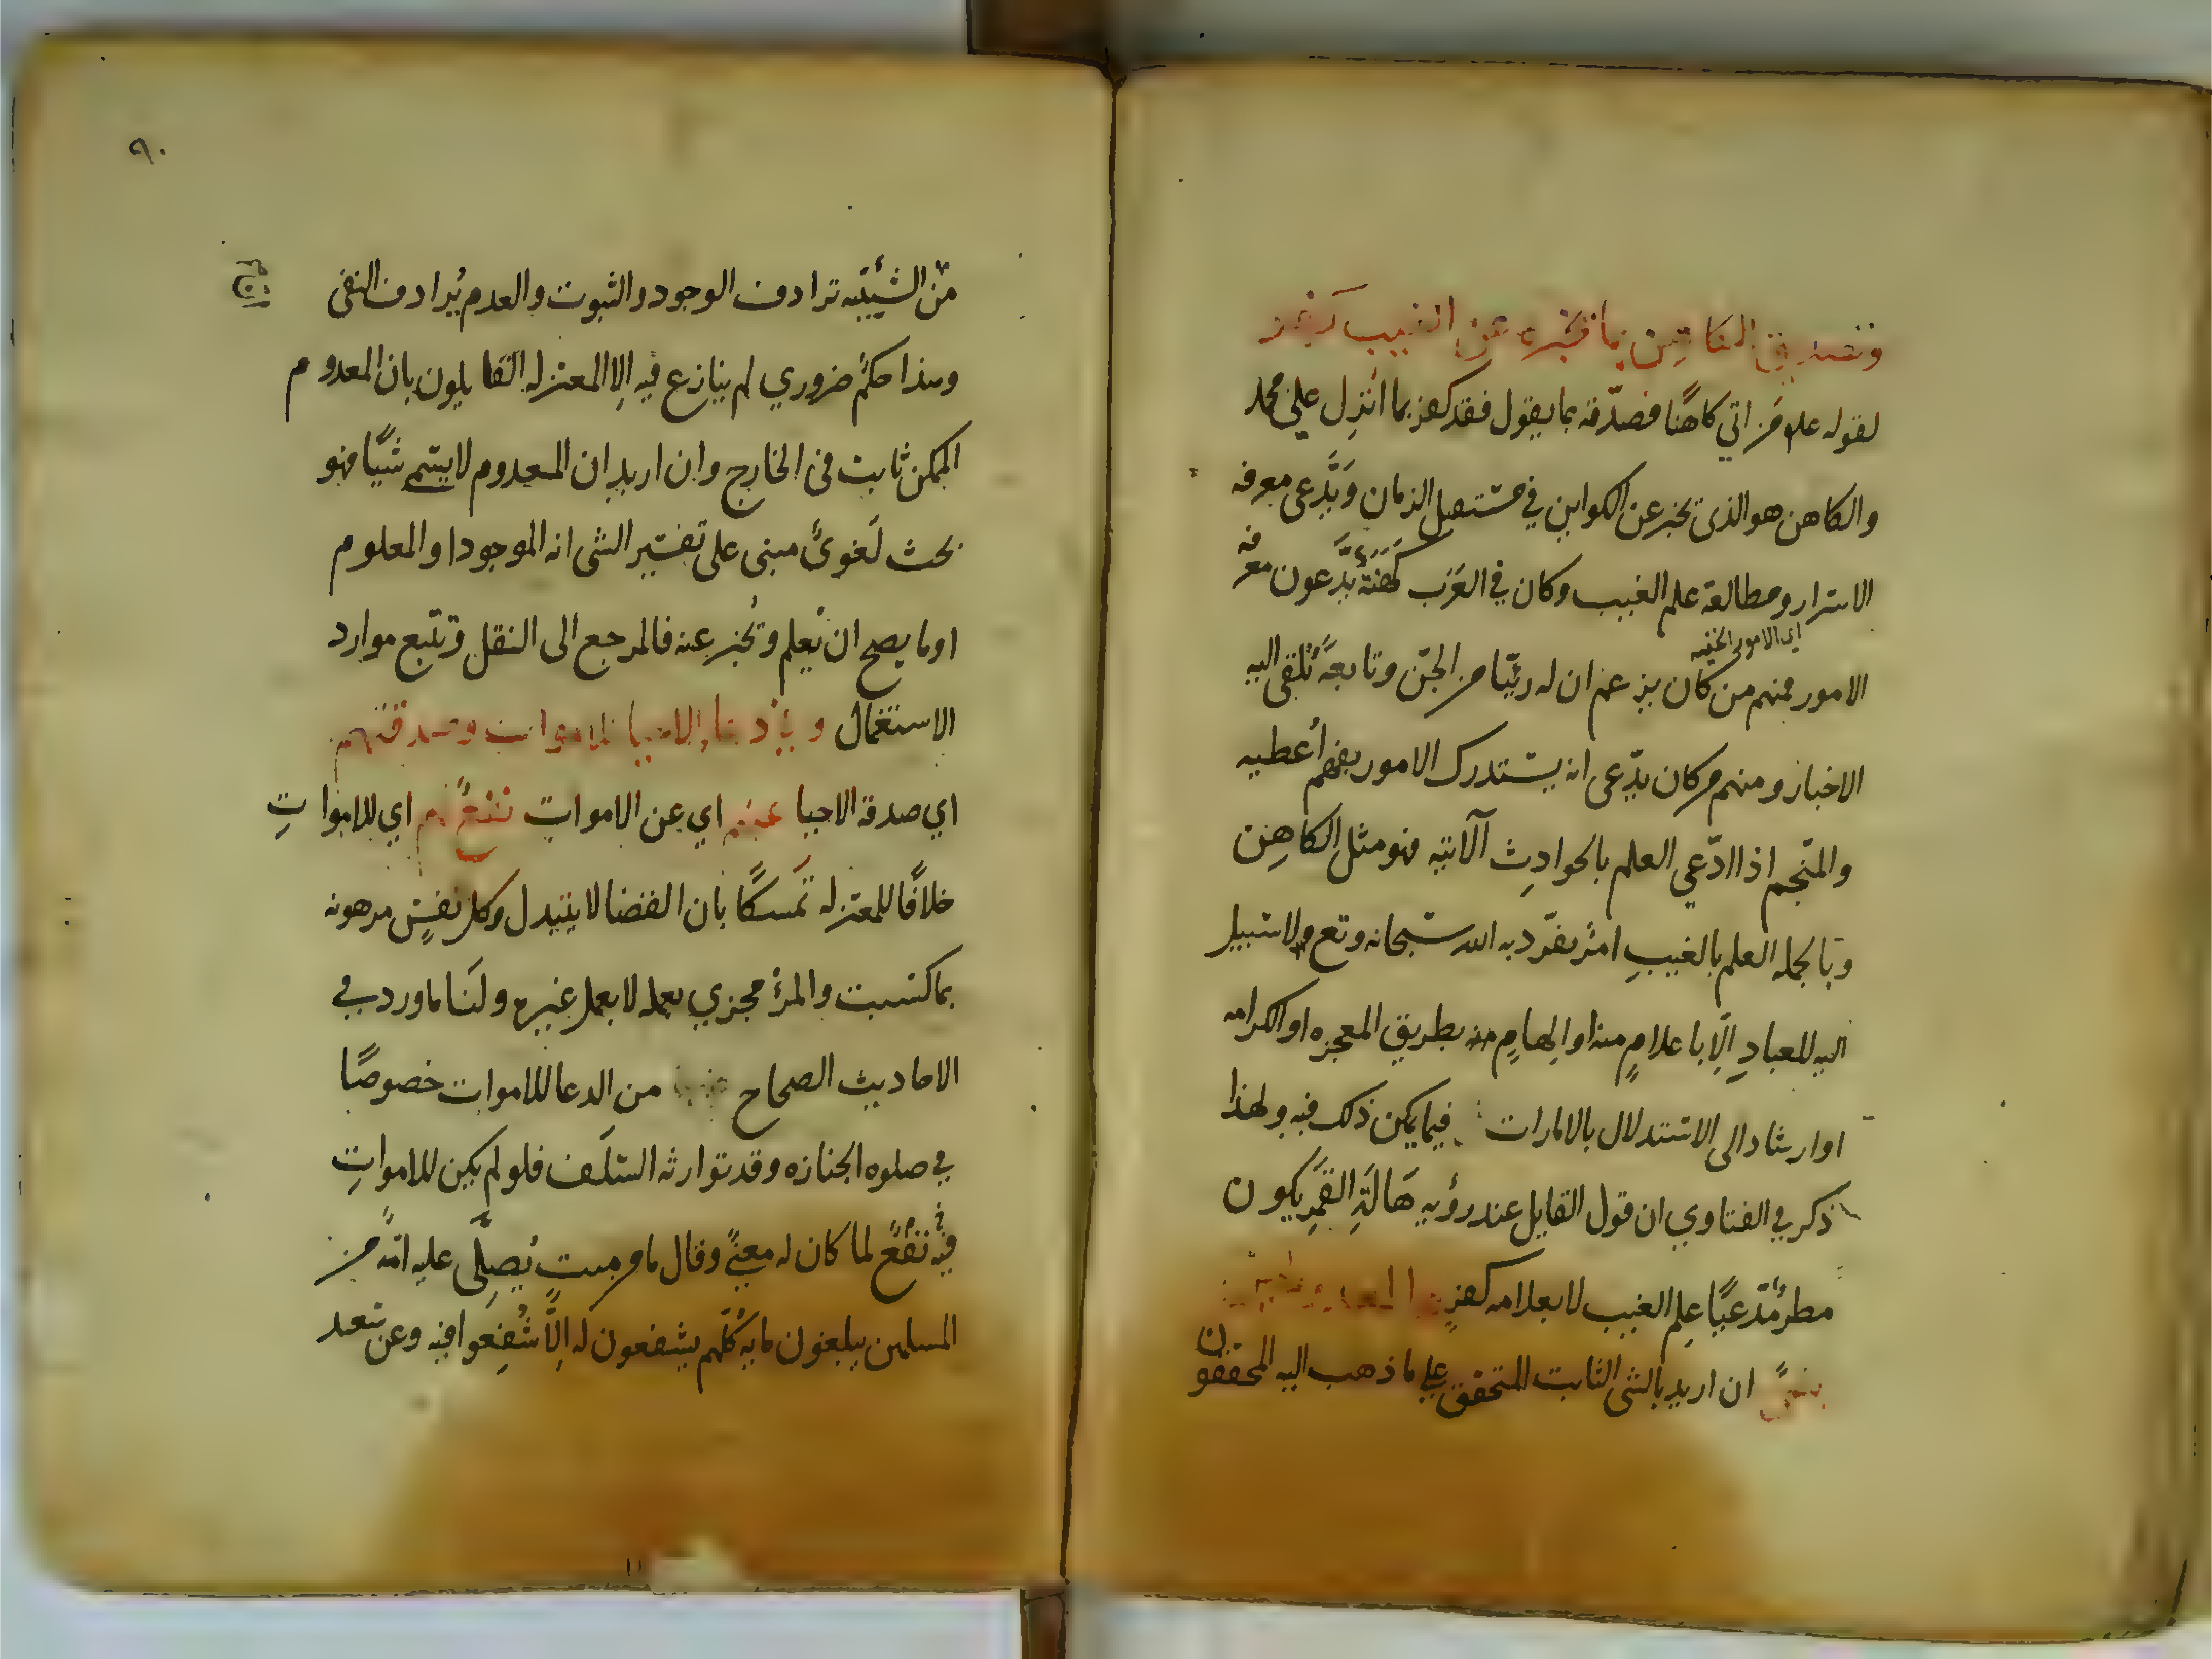 وتصديق الكاهن بما يخبره عن الغيب كفر
لقوله علم من اتي كاهنًا فصدّقه بما يقول فقد كفر بما انزل علي محمد
والكاهن هو الذي يخبر عن الكواين في مستقبل الزمان ويَدَّعى معرفه
الاسرار ومطالعة علم الغيب وكان في العرب كَهَنَةٌ يدَّعون معرفه
اي الامور الخفيه
الامور فمنهم من كان يزعم ان له رئيّا من الجن وتابعةً تُلقى اليه
الاخبار ومنهم من كان يدّعى انه يستدرك الامور بفهم أعطيه
والمنّجم اذا ادّعي العلم بالحوادث الآتيه فهو مثل الكاهِن
وبالجمله العلم بالغيبِ امرٌ تفرّد به الله سبحانه وتع ولا سبيل
اليه للعبادِ اِلّا باعلامٍ منه او اِلهامٍ منه بطريق المعجزه او الكرامه
او ارشاد الى الاستدلال بالامارات فيما يمكن ذلك فيه ولهذا
ذكر في الفتاوي ان قول القايل عند رؤيه هَالَةِ القَمَرِ يكون
مطر مُدّعيًا عِلم الغيب لا بعلامه كفر والمعدوم ليس
بشئٍ ان اريد بالشى الثابت المتحقق علي ما ذهب اليه المحققون
٩٠
من الشَيئيّه ترادف الوجود والثبوت والعدم يُرادف النفى
وهذا حكمٌ ضروري لم ينازع فيه اِلا المعتزله القايلون بان المعدوم
الممكن ثابت فى الخارج وان اريد ان المعدوم لا يسمى شيًا فهو
بحث لَغوىٌ مبنى على تفسير الشى انه الموجود او المعلوم
او ما يصح ان يُعلم ويُخبر عنه فالمرجع الى النقل وتتبع موارد
الاستعمال وفي دعا الاحيا للاموات وصدقتهم
اي صدقة الاحيا عنهم اي عن الاموات نفعٌ لهم اي للامواتِ
خلافًا للمعتزله تَمسكًا بان القضا لا يتبدل وكل نفسٍ مرهونه
بما كسبت والمرؤ مجزي بعمله لا بعمل غيره ولنَا ما ورد في
الاحاديث الصحاح من الدعا للاموات خصوصًا
في صلوه الجنازه وقد توارثه السَلَف فلو لم يكن للامواتِ
فيه نَفعٌ لما كان له معنًي وقال ما من ميتٍ يُصلِّى عليه امّةٌ من
المسلمين يبلغون مايه كُلهم يشفعون له اِلّا شُفِعوا فيه وعن سعد